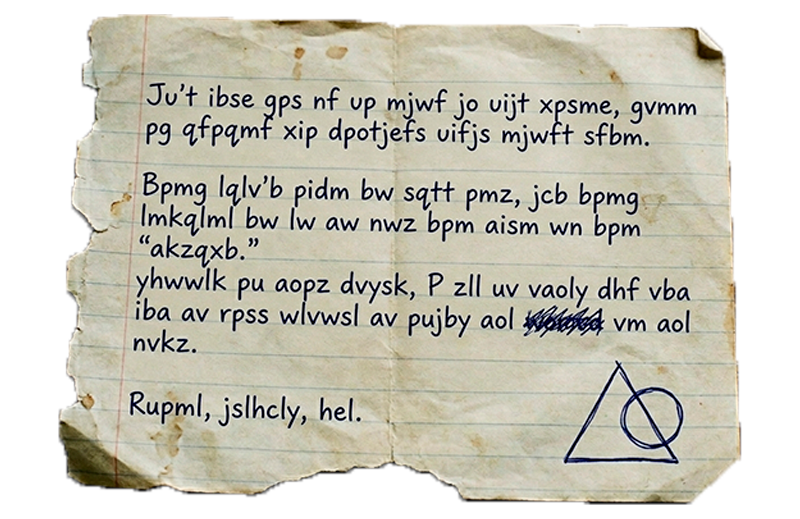 Ju't ibse gps nf up mjwf jo uijt xpsme, gvmm
pg qfpqmf xip dpotjefs uifjs mjwft sfbm.
Bpmg lqlv'b pidm bw sqtt pmz, jcb bpmg
lmkqlml bw lw aw nwz bpm aism wn bpm
“akzqxb.”
yhwwlk pu aopz dvysk, P zll uv vaoly dhf vba
iba av rpss wlvwsl av pujby aol vm aol
nvkz.
Rupml, jslhcly, hel.